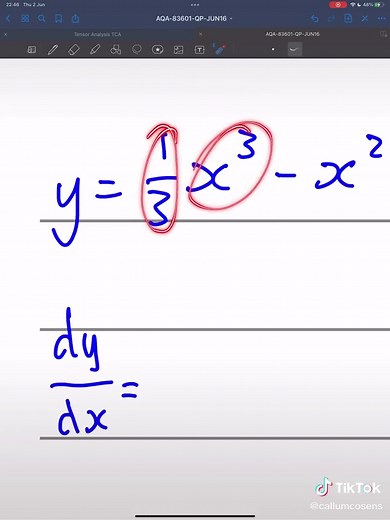 22:46 Thu 2 Jun
48%
AQA-83601-QP-JUN16
Tensor Analysis TCA
AQA-83601-QP-JUN16
y = 1/3 x³ - x²
dy/dx =
TikTok
@callumcosens